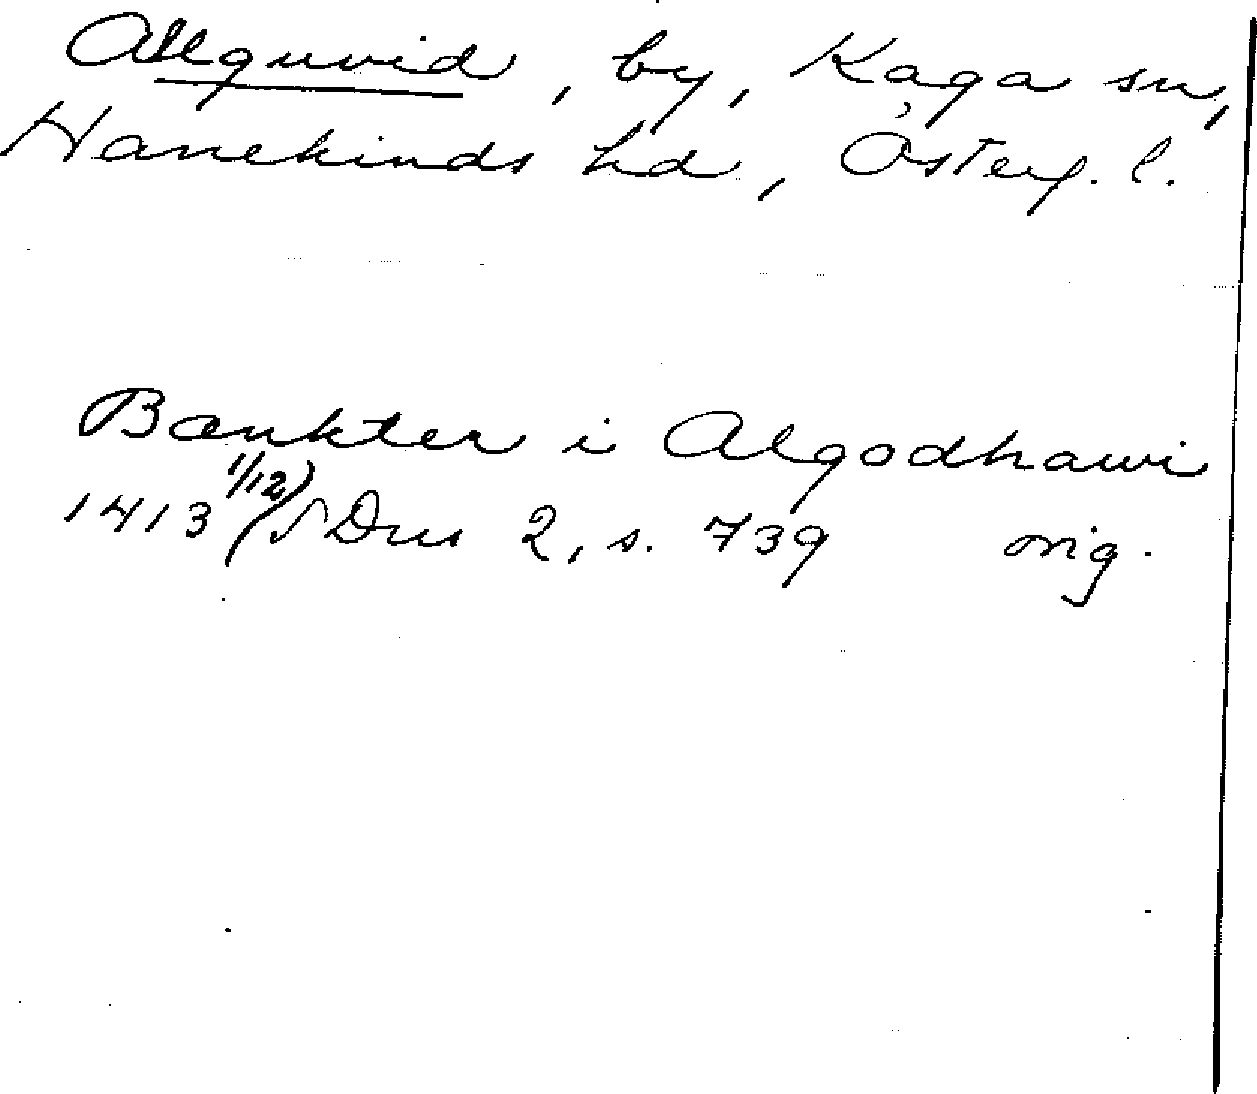 Allguvid, by, Kaga sn,
Hanekinds hd, Österg. l.
Bænkter i Algodhawi
1413 1/12) SDns 2, s. 739 orig.